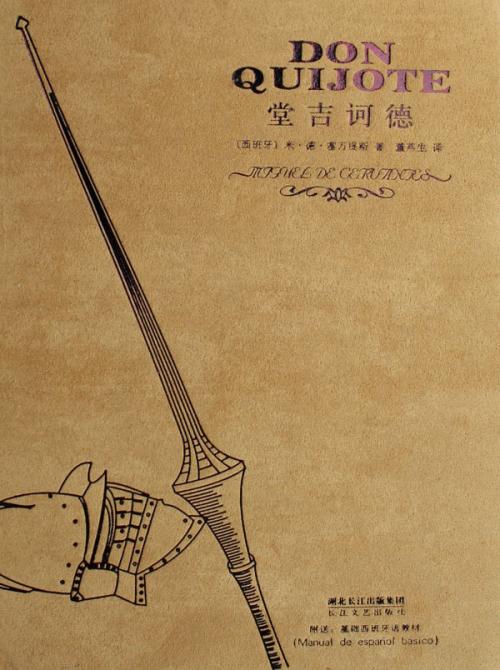 DON
QUIJOTE
堂吉诃德
(西班牙) 米·德·塞万提斯 著 董燕生 译
MIGUEL DE CERVANTES
湖北长江出版集团
长江文艺出版社
附送:基础西班牙语教材
(Manual de español básico)